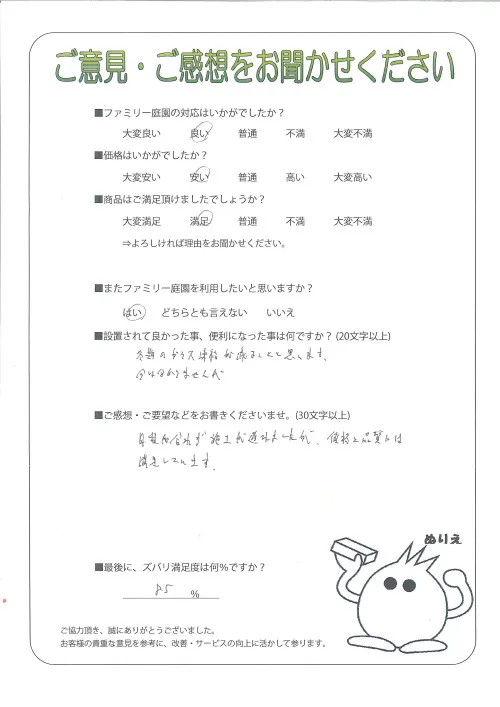 ご意見・ご感想をお聞かせください
■ファミリー庭園の対応はいかがでしたか？
大変良い 良い 普通 不満 大変不満
■価格はいかがでしたか？
大変安い 安い 普通 高い 大変高い
■商品はご満足頂けましたでしょうか？
大変満足 満足 普通 不満 大変不満
⇒よろしければ理由をお聞かせください。
■またファミリー庭園を利用したいと思いますか？
はい どちらとも言えない いいえ
■設置されて良かった事、便利になった事は何ですか？(20文字以上)
冬期のガラス凍結が減ることと思います。
今は分かりませんが
■ご感想・ご要望などをお書きくださいませ。(30文字以上)
施工が遅れましたが、価格と品質には
満足しています。
ぬりえ
■最後に、ズバリ満足度は何％ですか？
85 %
ご協力頂き、誠にありがとうございました。
お客様の貴重な意見を参考に、改善・サービスの向上に活かして参ります。